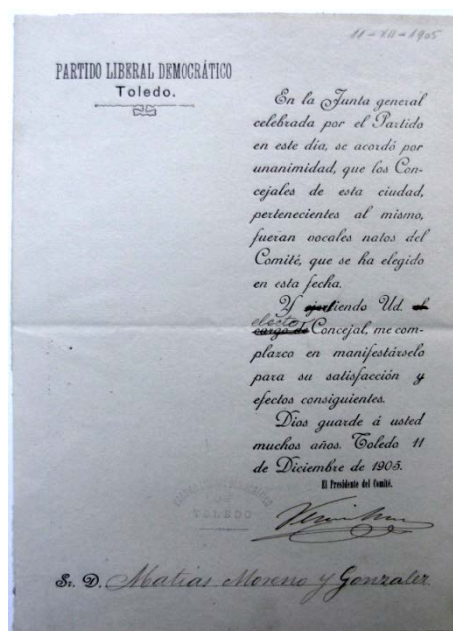 11-XII-1905
PARTIDO LIBERAL DEMOCRÁTICO
Toledo.
En la Junta general
celebrada por el Partido
en este día, se acordó por
unanimidad, que los Con-
cejales de esta ciudad,
pertenecientes al mismo,
fueran vocales natos del
Comité, que se ha elegido
en esta fecha.
Y ejerciendo Ud. el
electo
cargo de Concejal, me com-
plazco en manifestárselo
para su satisfacción y
efectos consiguientes.
Dios guarde á usted
muchos años. Toledo 11
de Diciembre de 1905.
El Presidente del Comité.
DE
TOLEDO
Sr. D. Matias Moreno y Gonzalez